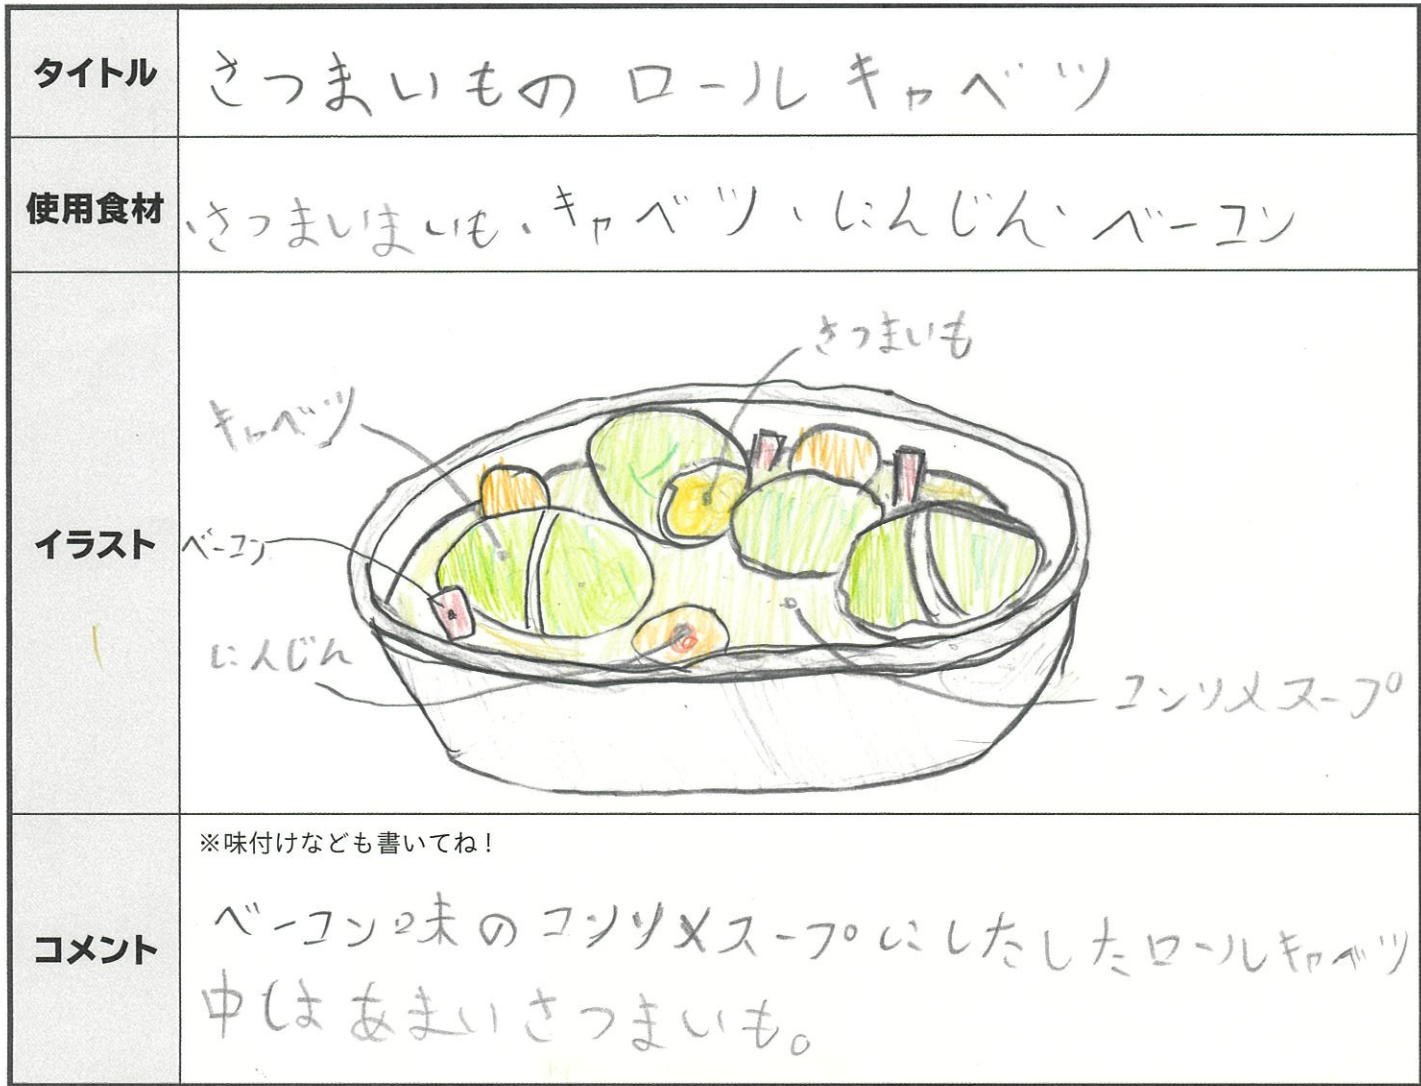 タイトル
さつまいもの ロールキャベツ
使用食材
・さつまいまいも、キャベツ、にんじん、ベーコン
イラスト
さつまいも
キャベツ
ベーコン
にんじん
コンソメスープ
コメント
※味付けなども書いてね！
ベーコン味のコンソメスープにしたしたロールキャベツ
中はあまいさつまいも。